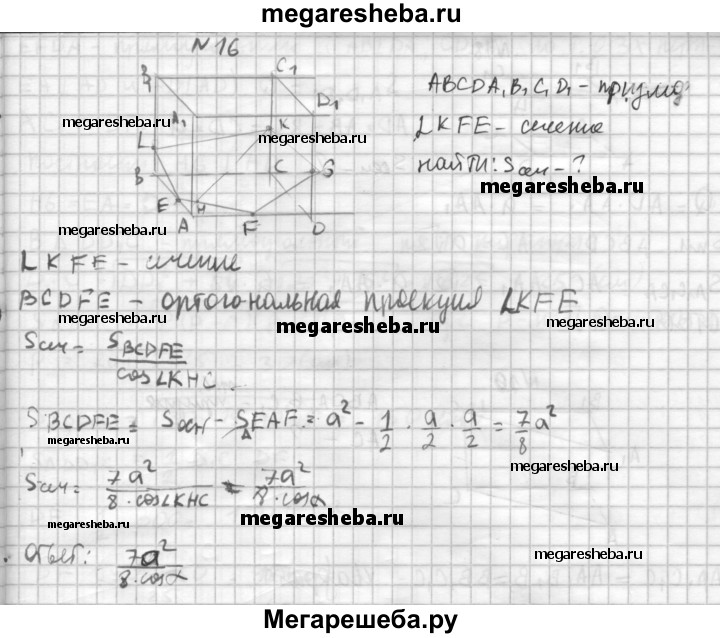 megaresheba.ru
N16
B₁ C₁
ABCDA₁B₁C₁D₁ - призма
D₁
megaresheba.ru A₁ K megaresheba.ru
LKFE - сечение
L
найти: Sсеч - ?
B C G
megaresheba.ru
E H
A F D
megaresheba.ru
LKFE - сечение
BCDFE - ортогональная проекция LKFE
megaresheba.ru megaresheba.ru megaresheba.ru
Sсеч = S BCDFE / cos∠KHC
S BCDFE = Sосн - S EAF = a² - 1/2 · a/2 · a/2 = 7/8 a²
megaresheba.ru megaresheba.ru
Sсеч = 7a² / 8·cos∠KHC = 7a² / 8·cosα
megaresheba.ru megaresheba.ru
Ответ: 7a² / 8·cosα
megaresheba.ru
Мегарешеба.ру